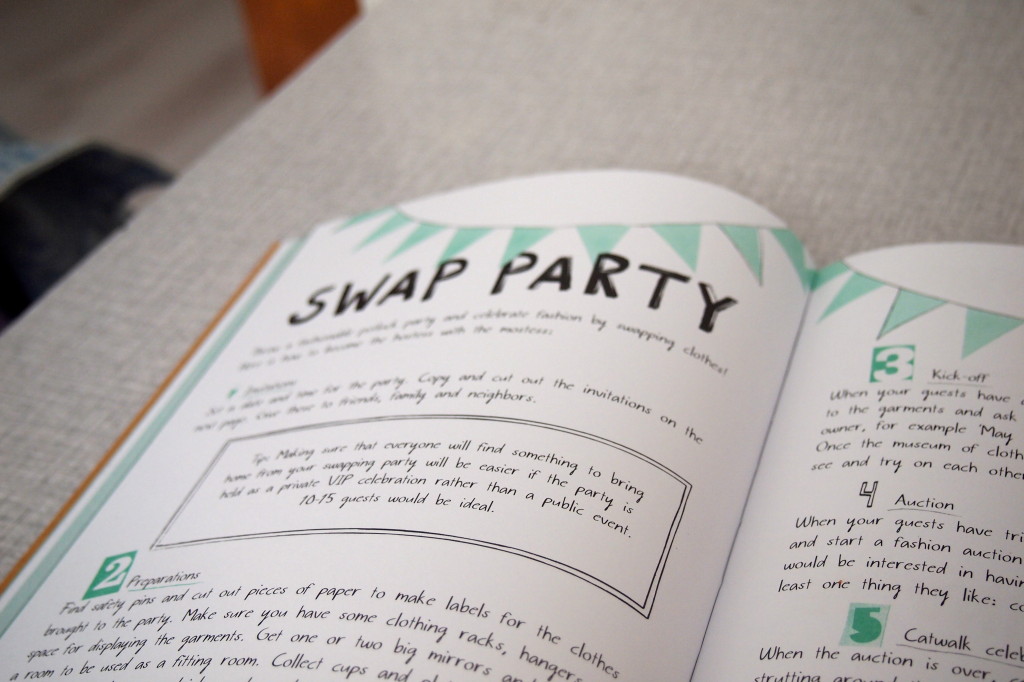 SWAP PARTY
party and celebrate fashion by swapping clothes!
Here is how to become the hostess with the mostess:
Invitations
Set a date and time for the party. Copy and cut out the invitations on the
next page. Give these to friends, family and neighbors.
Tip: Making sure that everyone will find something to bring
home from your swapping party will be easier if the party is
held as a private VIP celebration rather than a public event.
10-15 guests would be ideal.
2 Preparations
Find safety pins and cut out pieces of paper to make labels for the clothes
brought to the party. Make sure you have some clothing racks, hangers
space for displaying the garments. Get one or two big mirrors
a room to be used as a fitting room. Collect cups and
3 Kick-off
When your guests have
to the garments and ask
owner, for example 'May
Once the museum of cloth
see and try on each other
4 Auction
When your guests have tri
and start a fashion auction
would be interested in havin
least one thing they like: co
5 Catwalk celeb
When the auction is over, c
strutting around